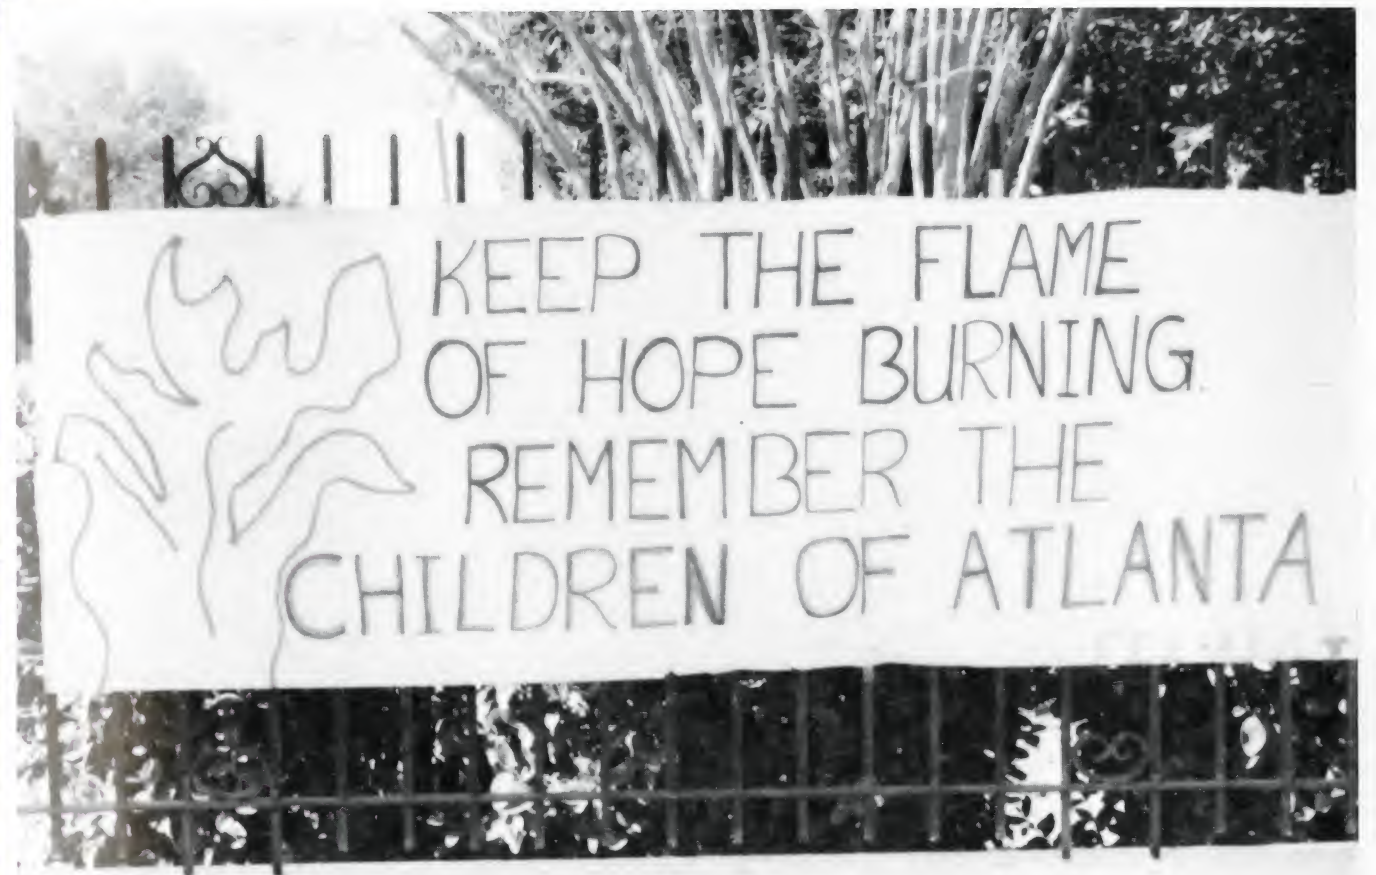 KEEP THE FLAME
OF HOPE BURNING.
REMEMBER THE
CHILDREN OF ATLANTA